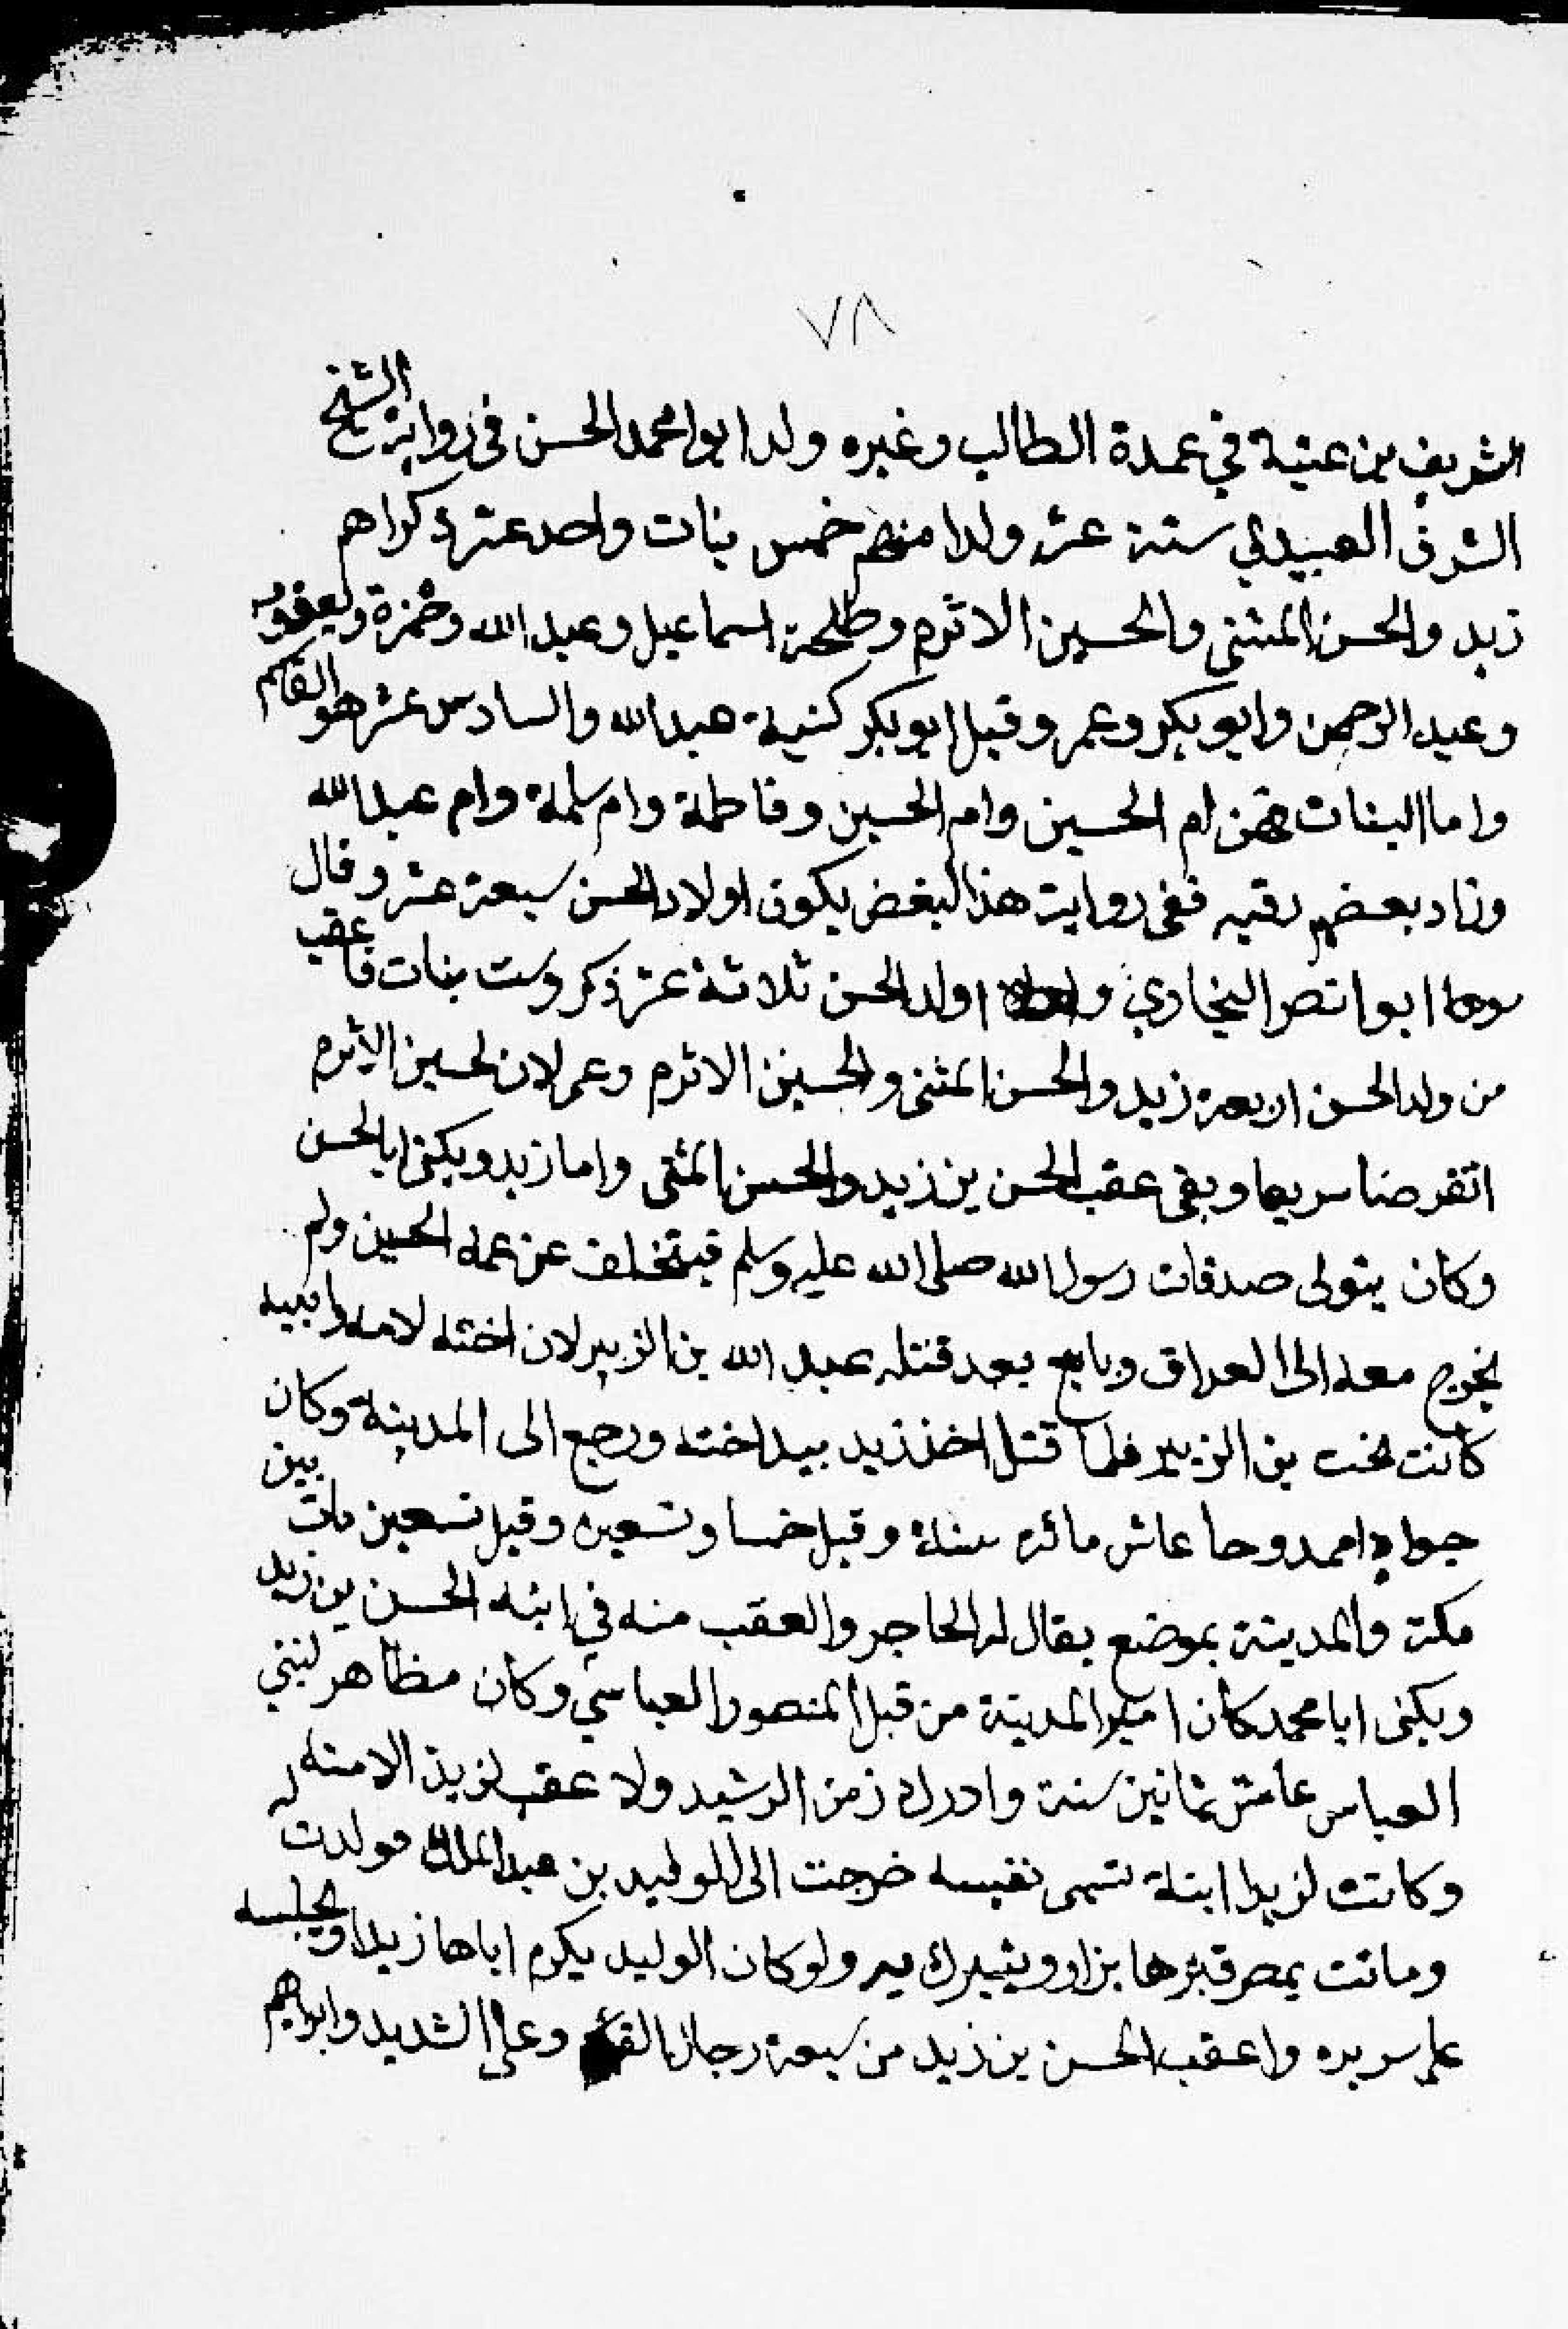 ٧٨
الشريف بن عنبة في عمدة الطالب وغيره ولد ابوا محمد الحسن في رواية الشيخ
الشرفى العبيدلي ستة عشر ولدا منهم خمس بنات واحد عشر ذكرا هم
زيد والحسن المثنى والحسين الاثرم وطلحة اسماعيل وعبد الله وحمزة ويعقوب
وعبد الرحمن وابو بكر وعمر وقيل ابو بكر كنية عبد الله والسادس عشر هو القاسم
واما البنات فهن ام الحسين وام الحسين وفاطمة وام سلمة وام عبد الله
وزاد بعضهم رقيه ففى رواية هذا لبغض يكون اولاد الحسن سبعة عشر وقال
ابوا نصر البخاري اولد الحسن ثلاثة عشر ذكر وست بنات فاعقب
من ولد الحسن اربعة زيد والحسن المثنى والحسين الاثرم وعمر لان لحسين الاثرم
انقرضا سريعا وبقى عقب الحسن بن زيد والحسن المثنى واما زيد ويكنى ابا الحسن
وكان يتولى صدقات رسول الله صلى الله عليه وسلم فيتخلف عن عمه الحسين ولم
يخرج معه الى العراق وبايع بعد قتله عبد الله بن الزبير لان اخته لامه وابيه
كانت تحت بن الزبير فلما قتل اخذ زيد بيد اخته ورجع الى المدينة وكان
جوادا ممدوحا عاش مائة سنة وقيل خمسا وتسعين وقيل تسعين مات بين
مكة والمدينة بموضع يقال له الحاجر والعقب منه في ابنه الحسن بن زيد
ويكنى ابا محمد كان امير المدينة من قبل المنصور العباسي وكان مظاهر لبني
العباس عاش ثمانين سنة وادرك زمن الرشيد ولا عقب لزيد الا منه
وكانت لزيدا ابنة تسمى نفيسه خرجت الى الوليد بن عبد الملك فولدت له
وماتت بمصر قبرها يزار ويتبرك به ولو كان الوليد يكرم اباها زيدا ويجلسه
على سريره واعقب الحسن بن زيد من سبعة رجال القاسم وعلى الشديد وابراهيم